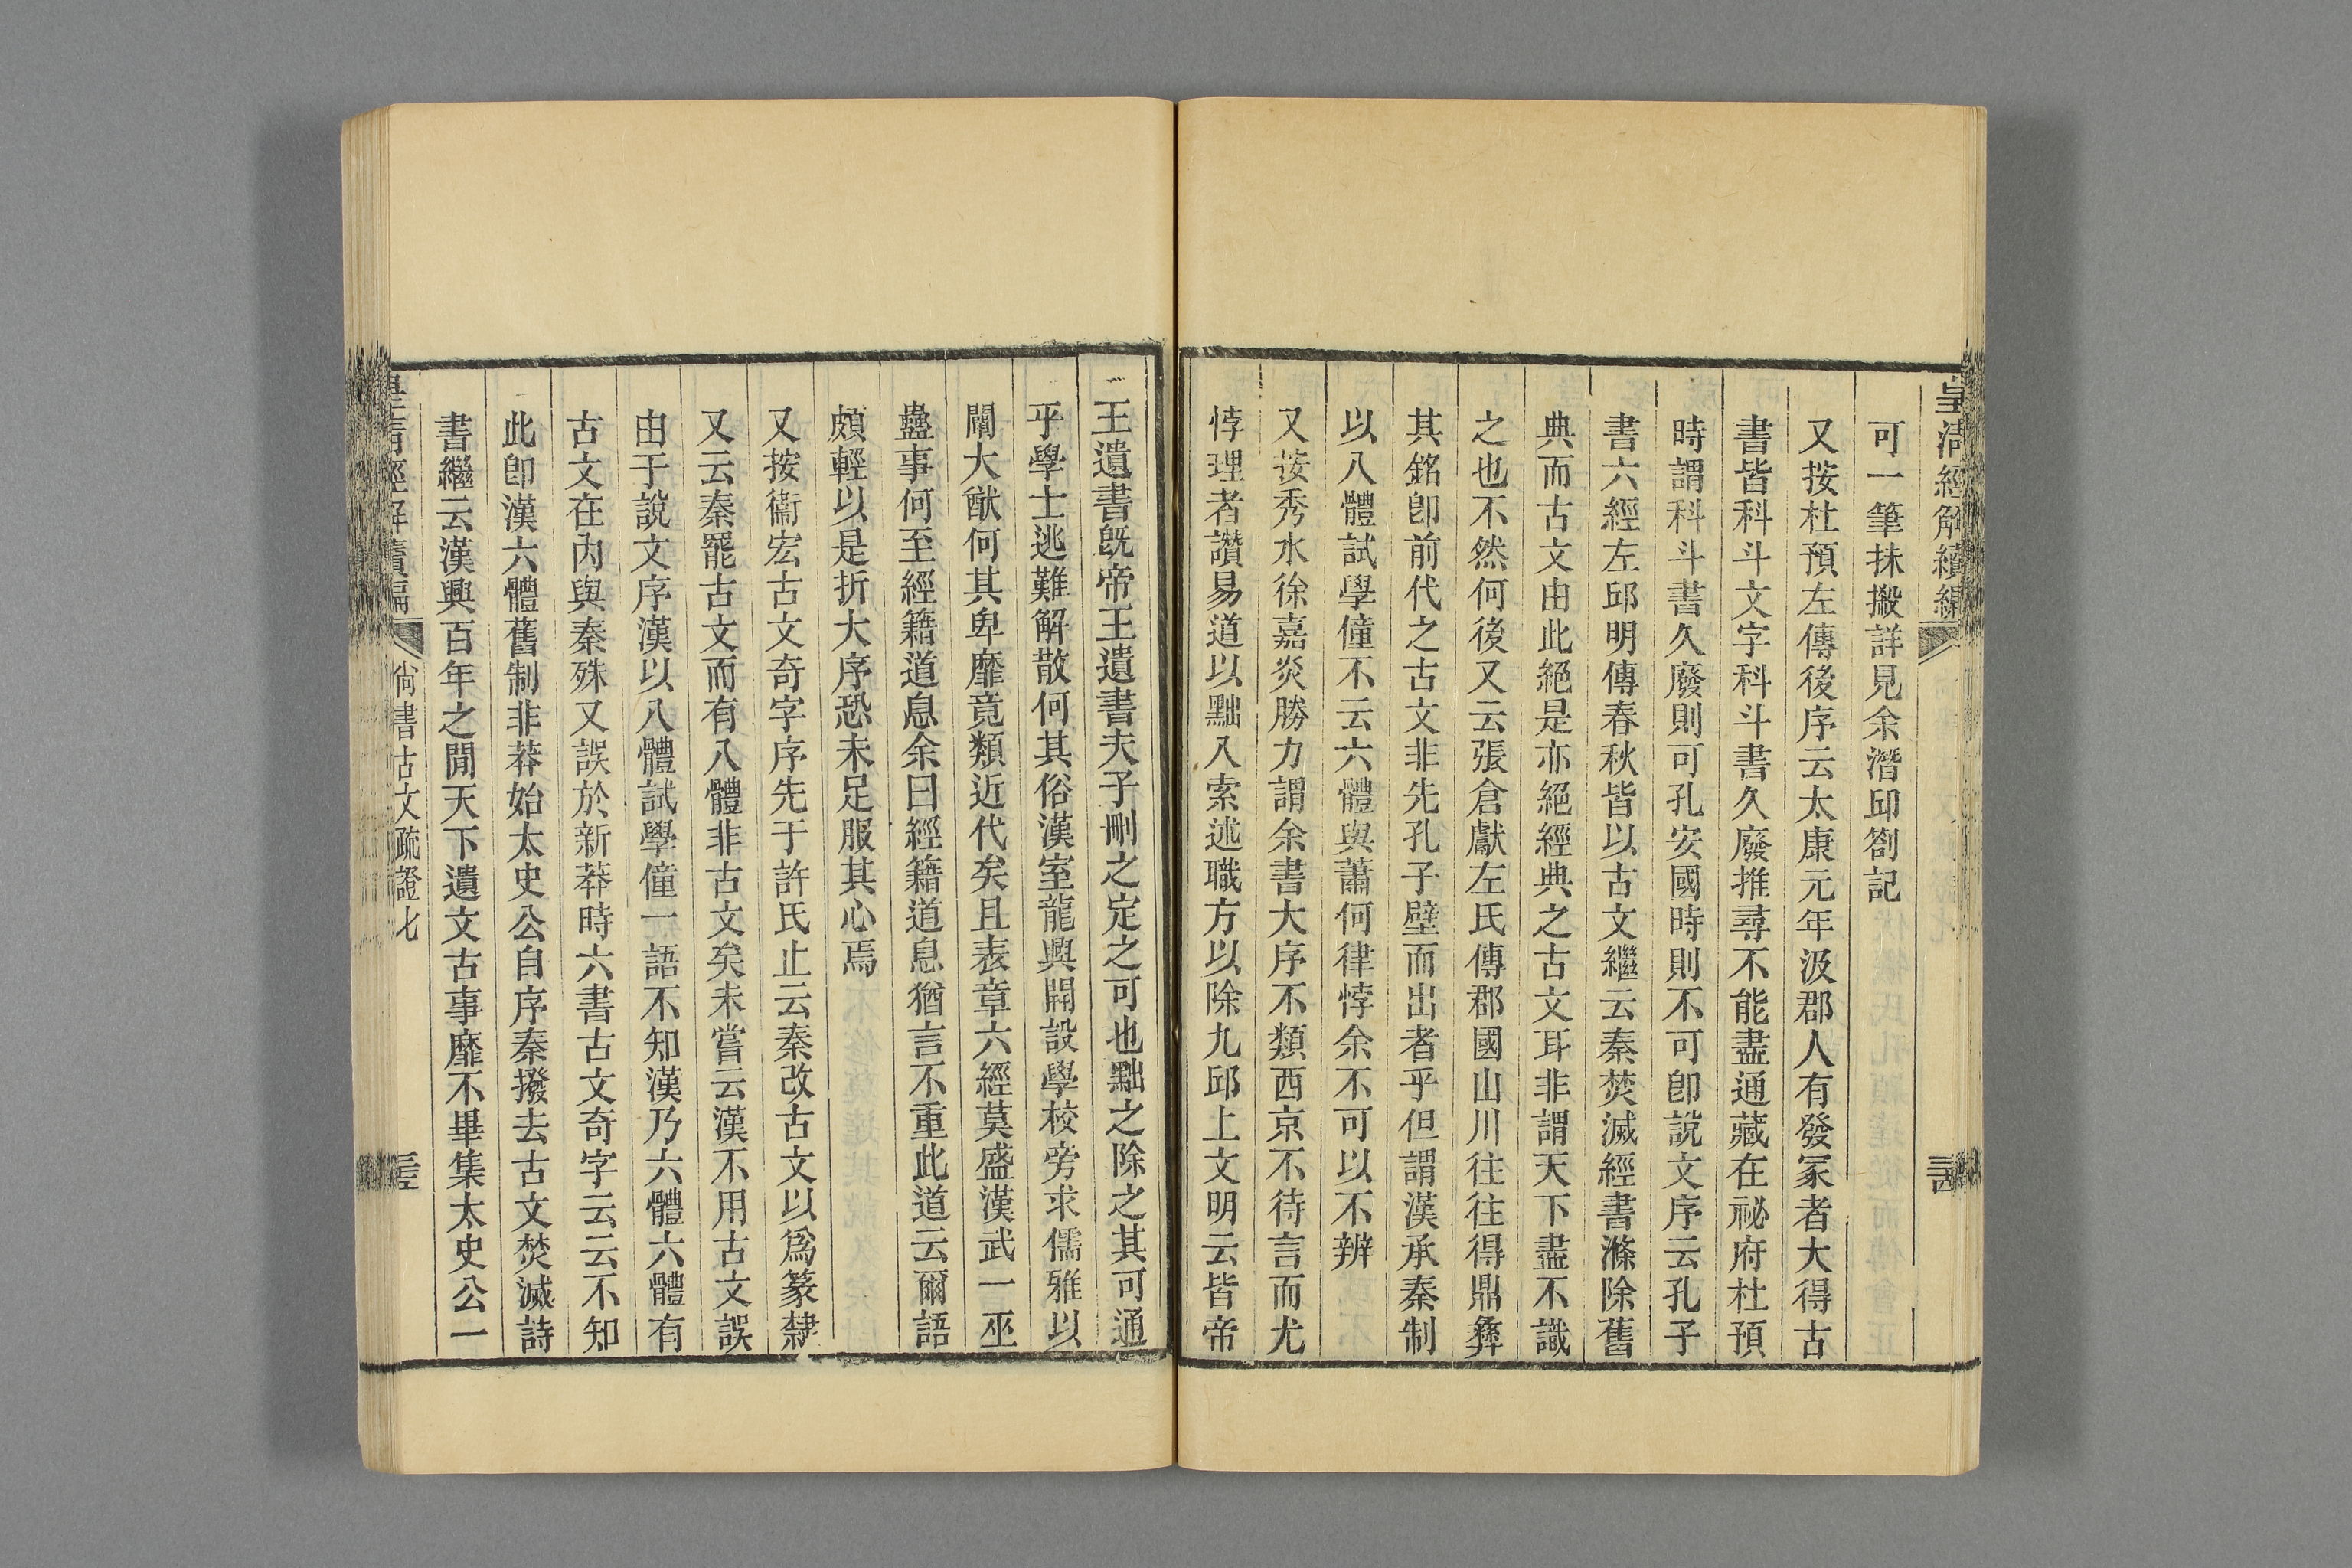 皇清經解續編
可一筆抹摋詳見余潛邱劄記
又按杜預左傳後序云太康元年汲郡人有發冢者大得古
書皆科斗文字科斗書久廢推尋不能盡通藏在祕府杜預
時謂科斗書久廢則可孔安國時則不可卽說文序云孔子
書六經左邱明傳春秋皆以古文繼云秦焚滅經書滌除舊
典而古文由此絕是亦絕經典之古文耳非謂天下盡不識
之也不然何後又云張倉獻左氏傳郡國山川往往得鼎彝
其銘卽前代之古文非先孔子壁而出者乎但謂漢承秦制
以八體試學僮不云六體與蕭何律悖余不可以不辨
又按秀水徐嘉炎勝力謂余書大序不類西京不待言而尤
悖理者讚易道以黜八索述職方以除九邱上文明云皆帝
王遺書旣帝王遺書夫子刪之定之可也黜之除之其可通
乎學士逃難解散何其俗漢室龍興開設學校旁求儒雅以
闡大猷何其卑靡竟類近代矣且表章六經莫盛漢武一巫
蠱事何至經籍道息余曰經籍道息猶言不重此道云爾語
頗輕以是折大序恐未足服其心焉
又按衞宏古文奇字序先于許氏止云秦改古文以爲篆隸
又云秦罷古文而有八體非古文矣未嘗云漢不用古文誤
由于說文序漢以八體試學僮一語不知漢乃六體六體有
古文在內與秦殊又誤於新莽時六書古文奇字云云不知
此卽漢六體舊制非莽始太史公自序秦撥去古文焚滅詩
書繼云漢興百年之閒天下遺文古事靡不畢集太史公一
皇清經解續編
尚書古文疏證七